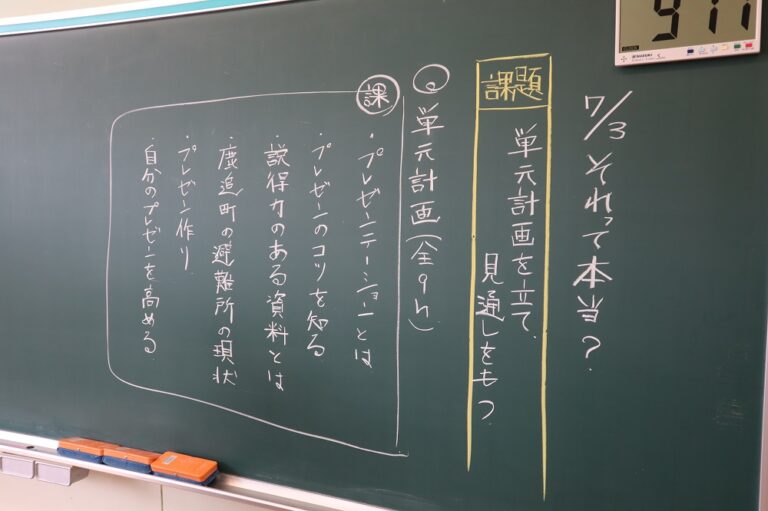 7/3 それって本当?
課題
単元計画を立て、
見通しをもつ
◎単元計画(全9h)
課
・プレゼンテーションとは
・プレゼンのコツを知る
・説得力のある資料とは
・鹿追町の避難所の現状
・プレゼン作り
・自分のプレゼンを高める